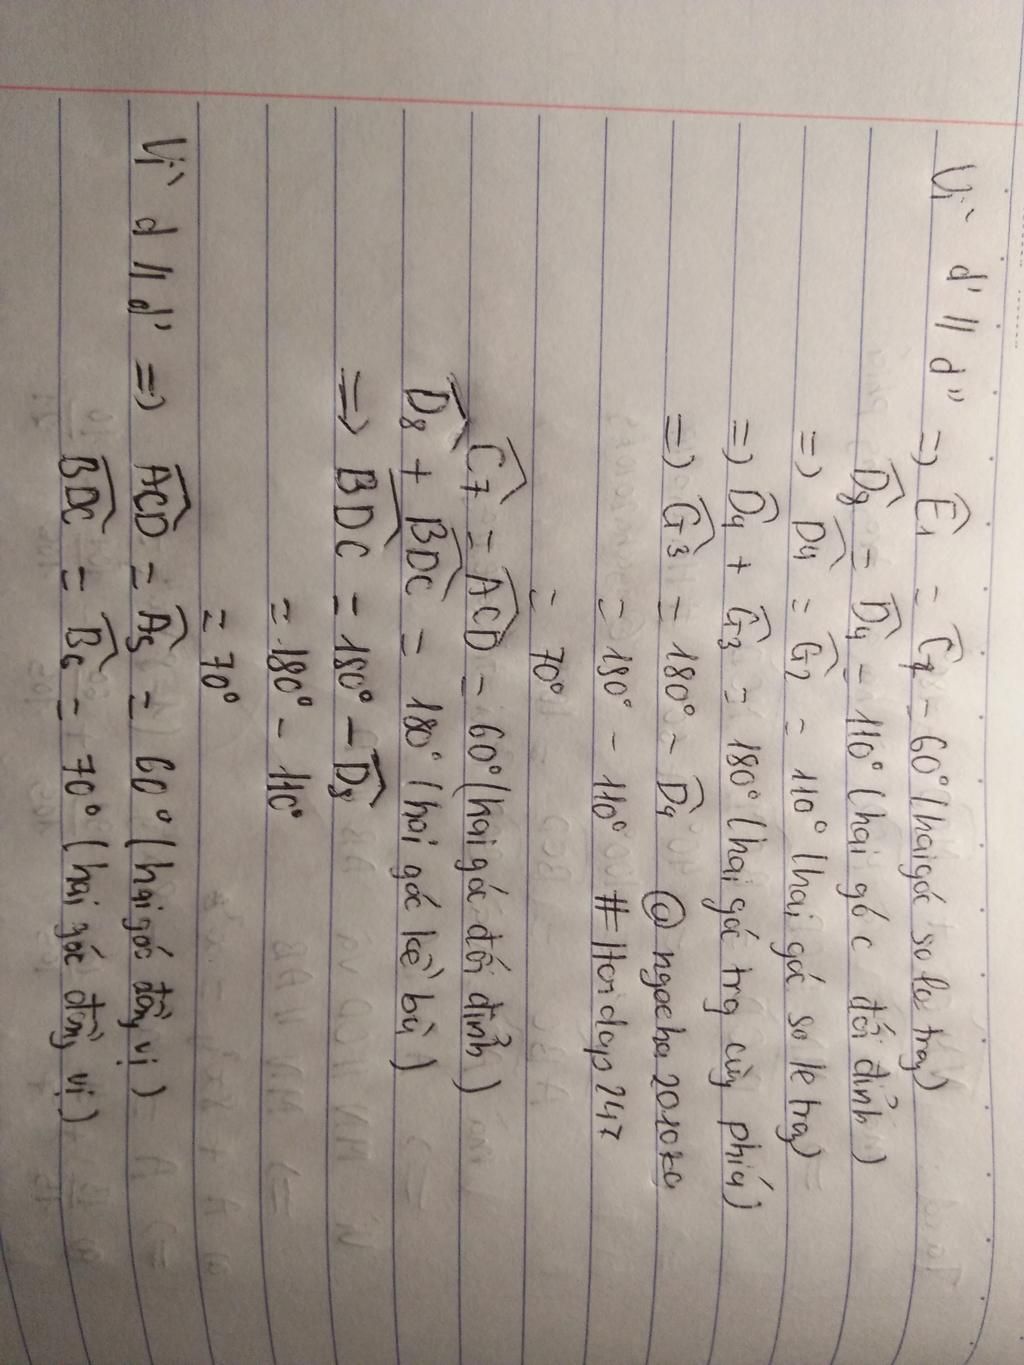 Vì d' // d'' => Ê1 = Ĉ7 = 60° (hai góc so le trg)
D̂8 = D̂4 = 110° (hai góc đối đỉnh)
=> D̂4 = Ĝ2 = 110° (hai góc so le trg)
=> D̂4 + Ĝ3 = 180° (hai góc trg cùg phía)
=> Ĝ3 = 180° - D̂4 @ngocha2010ka
= 180° - 110° #Hoidap247
= 70°
Ĉ7 = ACD̂ = 60° (hai góc đối đỉnh)
D̂8 + BDĈ = 180° (hai góc kề bù)
=> BDĈ = 180° - D̂8
= 180° - 110°
= 70°
Vì d // d' => ACD̂ = Â5 = 60° (hai góc đồg vị)
BDĈ = B̂6 = 70° (hai góc đồg vị)